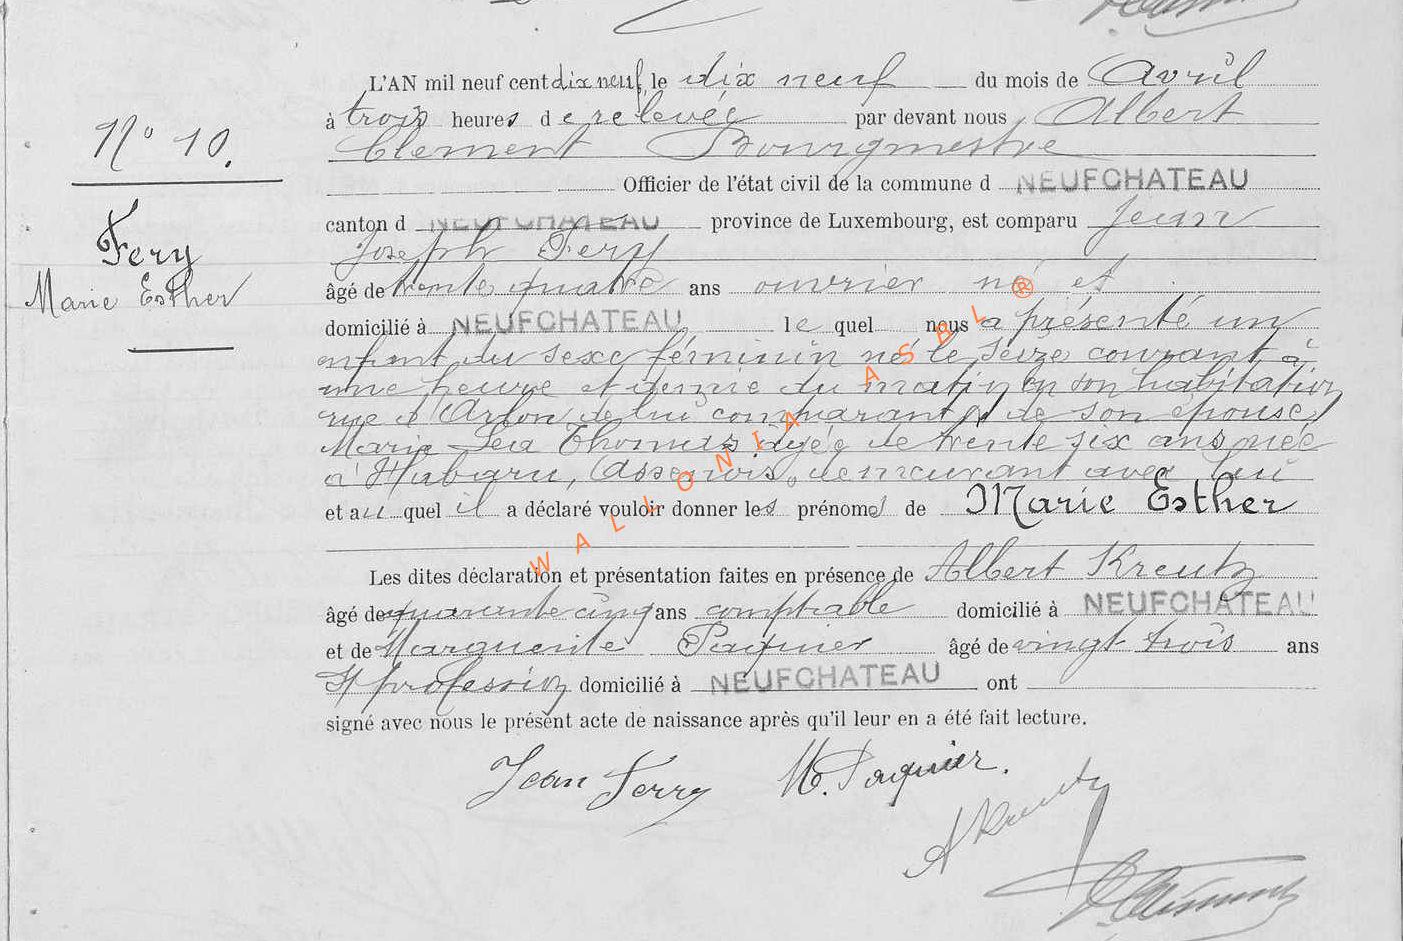 L'AN mil neuf cent dix neuf, le dix neuf du mois de Avril
à trois heures de relevée par devant nous Albert
Clement Bourgmestre
Officier de l'état civil de la commune d NEUFCHATEAU
N° 10.
canton d NEUFCHATEAU province de Luxembourg, est comparu Jean
Fery
Joseph Fery
Marie Esther
âgé de trente quatre ans ouvrier né et
domicilié à NEUFCHATEAU le quel nous a présenté un
enfant du sexe féminin né le seize courant à
une heure et demie du matin en son habitation
rue d'Arlon de lui comparant et de son épouse
Marie Léa Thomas âgée de trente six ans née
à Habaru, Assenois, demeurant avec lui
et au quel il a déclaré vouloir donner les prénoms de Marie Esther
WALLONIA ASBL ®
Les dites déclaration et présentation faites en présence de Albert Kreutz
âgé de quarante cinq ans comptable domicilié à NEUFCHATEAU
et de Marguerite Paquier âgé de vingt trois ans
profession domicilié à NEUFCHATEAU ont
signé avec nous le présent acte de naissance après qu'il leur en a été fait lecture.
Jean Ferry M. Paquier.
A Kreutz
A. Clement